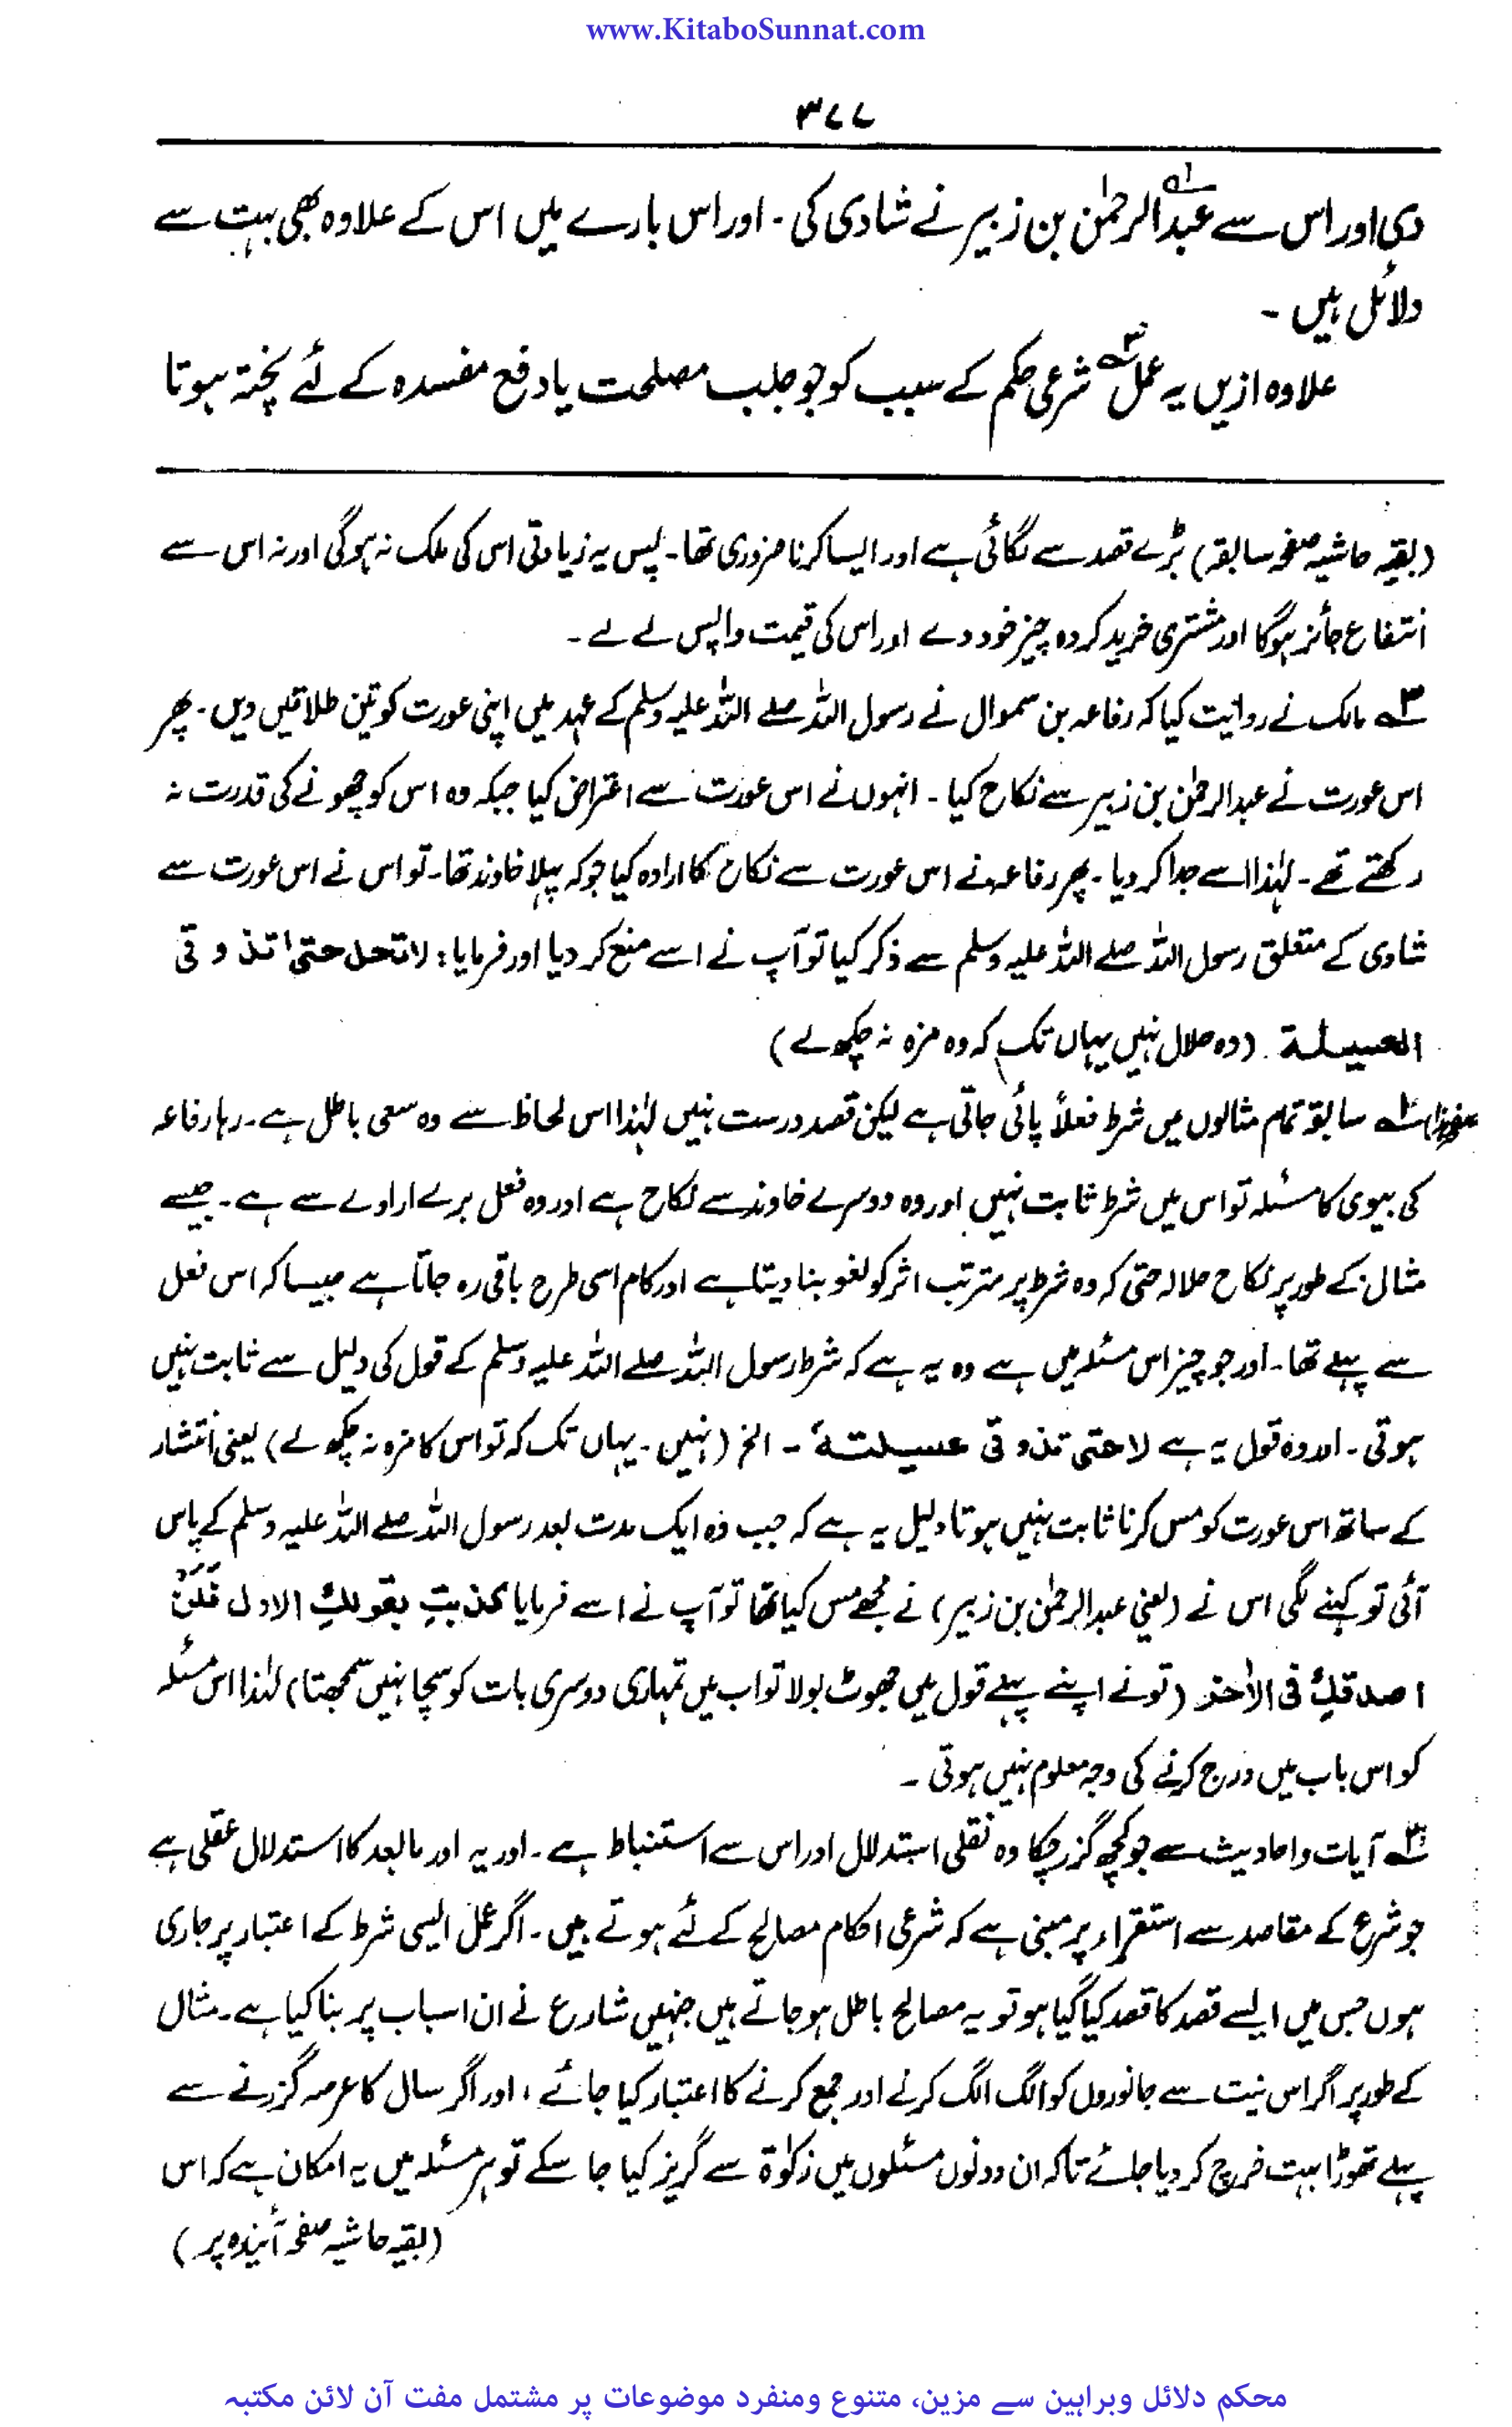 www.KitaboSunnat.com
۳۷۷
دی اور اس سے عبدالرحمٰن بن زبیر نے شادی کی۔ اور اس بارے میں اس کے علاوہ بھی بہت سے
دلائل ہیں ۔
علاوہ ازیں یہ عمل شرعی حکم کے سبب کو جو جلب مصلحت یا دفع مفسدہ کے لئے پختہ ہوتا
(بقیہ حاشیہ صفحہ سابقہ) بڑے قصد سے لگائی ہے اور ایسا کرنا ضروری تھا۔ پس یہ زیادتی اس کی ملک نہ ہوگی اور نہ اس سے
انتفاع جائز ہوگا اور مشتری خرید کردہ چیز خود دے اور اس کی قیمت واپس لے لے ۔
۳ مالک نے روایت کیا کہ رفاعہ بن سموال نے رسول اللہ صلے اللہ علیہ وسلم کے عہد میں اپنی عورت کو تین طلاقیں دیں۔ پھر
اس عورت نے عبدالرحمٰن بن زبیر سے نکاح کیا ۔ انہوں نے اس عورت سے اعتراض کیا جبکہ وہ اس کو چھونے کی قدرت نہ
رکھتے تھے۔ لہٰذا اسے جدا کر دیا ۔ پھر رفاعہ نے اس عورت سے نکاح کا ارادہ کیا جو کہ پہلا خاوند تھا۔ تو اس نے اس عورت سے
شادی کے متعلق رسول اللہ صلے اللہ علیہ وسلم سے ذکر کیا تو آپ نے اسے منع کر دیا اور فرمایا: لا تحل حتیٰ تذوقی
العسیلۃ (وہ حلال نہیں یہاں تک کہ وہ مزہ نہ چکھ لے)
صفحہ ہذا) ۱ سابقہ تمام مثالوں میں شرط فعلاً پائی جاتی ہے لیکن قصد درست نہیں لہٰذا اس لحاظ سے وہ سعی باطل ہے۔ رہا رفاعہ
کی بیوی کا مسئلہ تو اس میں شرط ثابت نہیں اور وہ دوسرے خاوند سے نکاح ہے اور وہ فعل برے ارادے سے ہے۔ جیسے
مثال کے طور پر نکاح حلالہ حتیٰ کہ وہ شرط پر مترتب اثر کو لغو بنا دیتا ہے اور کام اسی طرح باقی رہ جاتا ہے جیسا کہ اس فعل
سے پہلے تھا۔ اور جو چیز اس مسئلہ میں ہے وہ یہ ہے کہ شرط رسول اللہ صلے اللہ علیہ وسلم کے قول کی دلیل سے ثابت نہیں
ہوتی۔ اور وہ قول یہ ہے لا حتی تذوقی عسیلتہٗ ۔ الخ (نہیں۔ یہاں تک کہ تو اس کا مزہ نہ چکھ لے) یعنی انتشار
کے ساتھ اس عورت کو مس کرنا ثابت نہیں ہوتا دلیل یہ ہے کہ جب وہ ایک مدت بعد رسول اللہ صلے اللہ علیہ وسلم کے پاس
آئی تو کہنے لگی اس نے (یعنی عبدالرحمٰن بن زبیر) نے مجھے مس کیا تھا تو آپ نے اسے فرمایا کذبتِ بقولکِ الاول فَلَنْ
اصدقکِ فی الاٰخر (تو نے اپنے پہلے قول میں جھوٹ بولا تو اب میں تمہاری دوسری بات کو سچا نہیں سمجھتا) لہٰذا اس مسئلہ
کو اس باب میں درج کرنے کی وجہ معلوم نہیں ہوتی ۔
۲ آیات واحادیث سے جو کچھ گزر چکا وہ نقلی استدلال اور اس سے استنباط ہے۔ اور یہ اور مابعد کا استدلال عقلی ہے
جو شرع کے مقاصد سے استقراء پر مبنی ہے کہ شرعی احکام مصالح کے لئے ہوتے ہیں۔ اگر علل ایسی شرط کے اعتبار پر جاری
ہوں جس میں ایسے قصد کا قصد کیا گیا ہو تو یہ مصالح باطل ہو جاتے ہیں جنہیں شارع نے ان اسباب پر بنا کیا ہے۔ مثال
کے طور پر اگر اس نیت سے جانوروں کو الگ الگ کرنے اور جمع کرنے کا اعتبار کیا جائے، اور اگر سال کا عرصہ گزرنے سے
پہلے تھوڑا بہت خرچ کر دیا جائے تاکہ ان دونوں مسئلوں میں زکوٰۃ سے گریز کیا جا سکے تو ہر مسئلہ میں یہ امکان ہے کہ اس
(بقیہ حاشیہ صفحہ آئیندہ پر)
محکم دلائل وبراہین سے مزین، متنوع ومنفرد موضوعات پر مشتمل مفت آن لائن مکتبہ